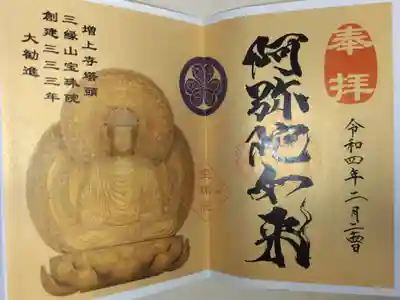 奉拝
阿弥陀如来
令和四年二月二四日
増上寺塔頭
三縁山宝珠院
創建三三三年
大勧進